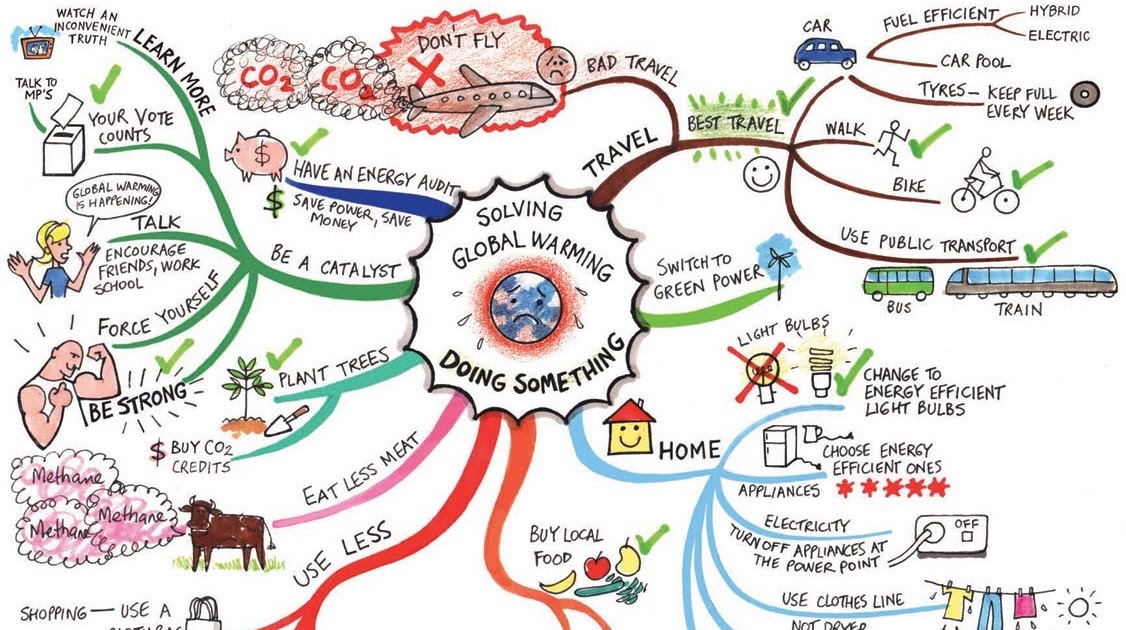 WATCH AN
INCONVENIENT
TRUTH
LEARN MORE
TALK TO
MP'S
YOUR VOTE
COUNTS
GLOBAL WARMING
IS HAPPENING!
TALK
ENCOURAGE
FRIENDS, WORK
SCHOOL
FORCE YOURSELF
BE STRONG
BE A CATALYST
$
HAVE AN ENERGY AUDIT
$ SAVE POWER, SAVE
MONEY
CO2
CO2
DON'T FLY
BAD TRAVEL
TRAVEL
BEST TRAVEL
CAR
FUEL EFFICIENT
HYBRID
ELECTRIC
CAR POOL
TYRES — KEEP FULL
EVERY WEEK
WALK
BIKE
USE PUBLIC TRANSPORT
BUS
TRAIN
SOLVING
GLOBAL WARMING
DOING SOMETHING
SWITCH TO
GREEN POWER
LIGHT BULBS
CHANGE TO
ENERGY EFFICIENT
LIGHT BULBS
HOME
CHOOSE ENERGY
EFFICIENT ONES
APPLIANCES
ELECTRICITY
TURN OFF APPLIANCES AT
THE POWER POINT
OFF
USE CLOTHES LINE
NOT DRYER
PLANT TREES
$ BUY CO2
CREDITS
EAT LESS MEAT
Methane
Methane
Methane
USE LESS
SHOPPING — USE A
BUY LOCAL
FOOD